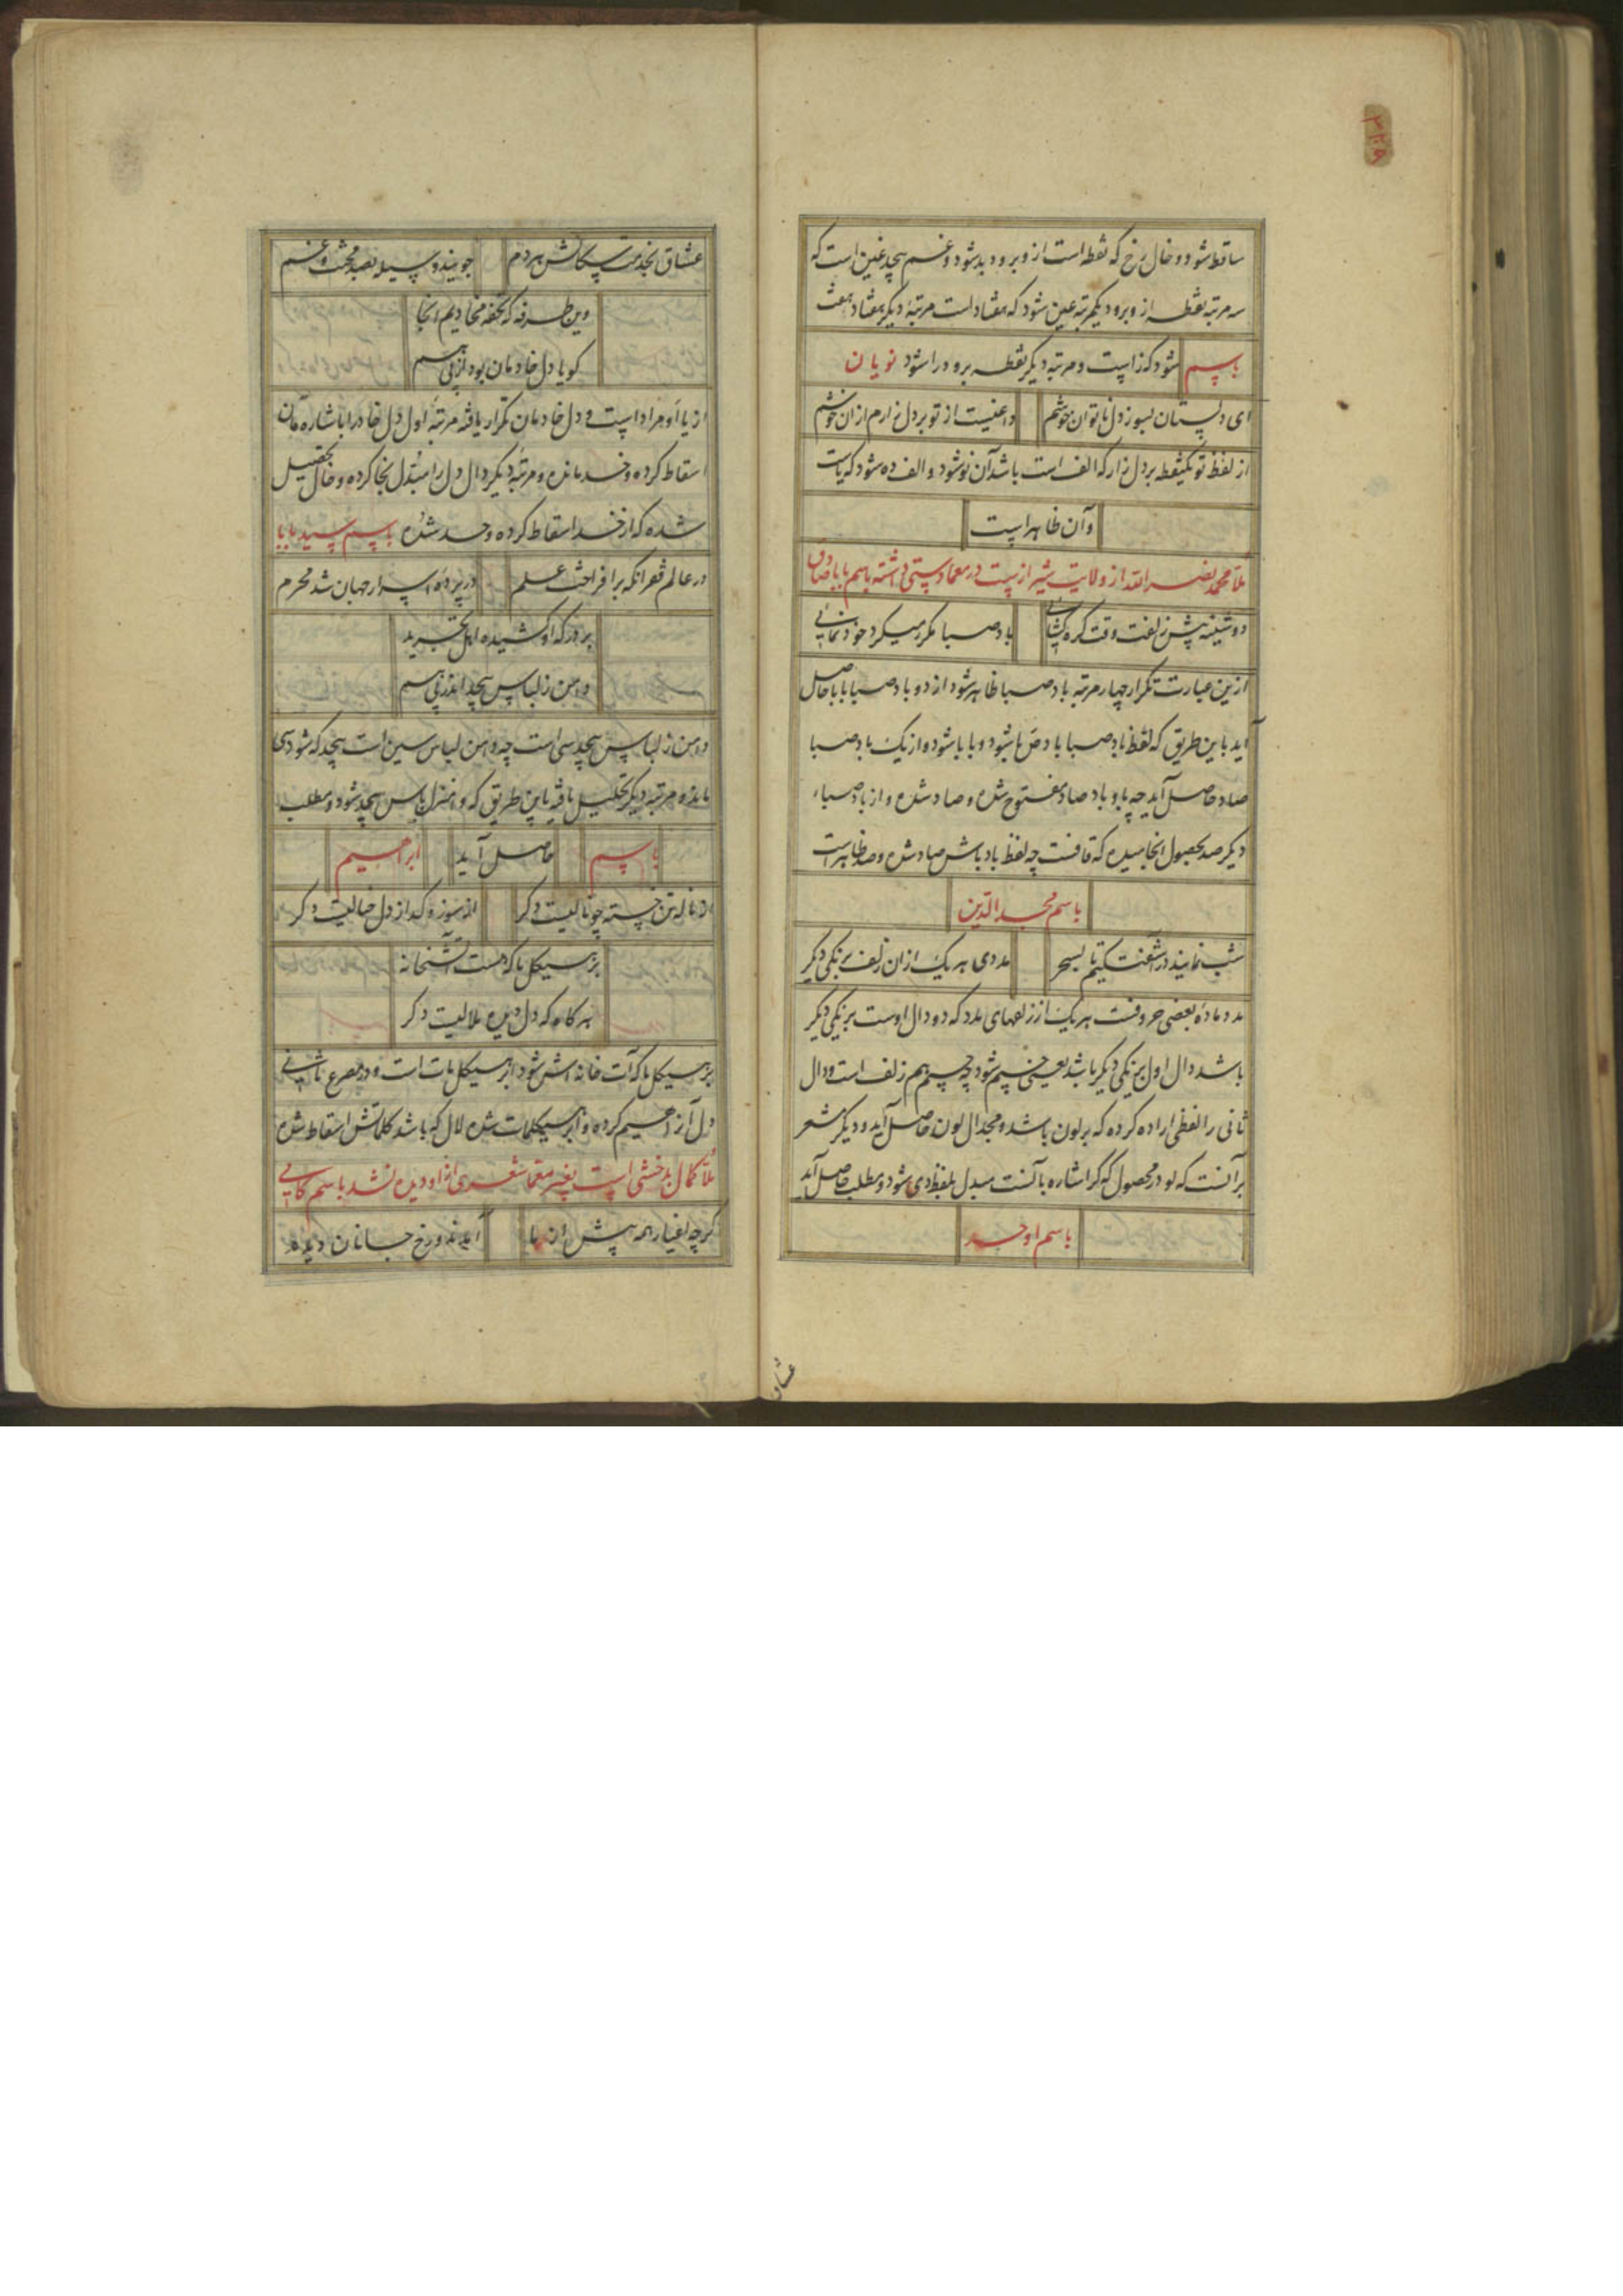 ساقط شود و خال رخ که نقطه است از و برود بد شود و غم بیحد غین است که
سه مرتبه نقطه از و برود یکمرتبه عین شود که هفتاد است مرتبهٔ دیگر هفتاد هفت
شود که زاست و مرتبه دیگر نقطه برود را شود باسم نویان
ای دلستان بسوز دل ناتوان خوشم داغیست از تو بر دل زارم ازان خوشم
از لفظ تو یکنقطه بر دل زار که الف است باشد آن نو شود و الف ده شود که یاست
و آن ظاهر است
ملا محمد نصر الله از ولایت شیراز است در معما دستی داشته باسم بابا صادق
دوشینه پیش زلفت وقت کره کشایی باد صبا مکرر میکرد خود نمایی
ازین عبارت تکرار چهار مرتبه باد صبا ظاهر شود از دو باد صبا بابا حاصل
آید باین طریق که لفظ باد صبا باد با شود و بابا شود و از یک باد صبا
صاد حاصل آید چه با و باد صاد مفتوح شده و صاد شده و از باد صباء
دیگر صد بحصول انجامیده که قافست چه لفظ باد باش صاد شده و صد ظاهر است
باسم مجد الدین
شب نمایند در آشفت کیم تا بسحر مددی هر یک ازان زلف برنکی دیگر
مدد ماده بعضی حروفست هر یک از زلفهای مدد که دو دال اوست برنکی دیگر
باشد دال اول برنکی دیگر باشد یعنی جیم شود چه جیم هم زلف است و دال
ثانی را لفظی اراده کرده که بر لون باشد و مجدال لون حاصل آید و دیگر مشعر
بر آنست که لو در محصول که کر اشاره بآنست مبدل بلفظ دی شود و مطلب حاصل آید
باسم اوحد
عشاق
عشاق بخدمت سکانش هر دم جویند وسیله بصد محنت و غم
وین طرفه که تحفه مخادیم انجا
کویا دل خادمان بود از پی هم
از یا او مراد است و دل خادمان تکرار یافته مرتبهٔ اول دل خادرا باشاره مان
اسقاط کرده و خد مانده و مرتبهٔ دیگر دال دل را مبدل بخا کرده و خال تحصیل
شده که از خد اسقاط کرده وحد شده باسم سید بابا
در عالم فقر انکه برافراخت علم در پردهٔ اسرار جهان شد محرم
بر در که او کشیده اهل تجرید
دامن ز لباس بیحد اندر پی هم
دامن ز لباس بیحد سی است چه دامن لباس سین است بیحد که شود سی
ماند و مرتبه دیگر تحلیل یافته باین طریق که و امنزل باس بیحد شود و مطلب
حاصل آید باسم ابراهیم
از ناله تن خسته چو نالیست دکر از سوز و کداز دل خیالیست دکر
بر هیکل ما که هست آتشخانه
هر کاه که دل دیده ملالیست دکر
بر هیکل ما که آت خانه اش شود ابر هیکل مات است و در مصرع ثانی
دل از جیم کرده و ابر هیکلمات شده لال که باشد کلماتش اسقاط شده
ملا کمال بدخشی است بغیر معما شعری از او دیده نشد باسم کافی
کرچه اغیار همه پیش از ما آمدند و رخ جانان دیده